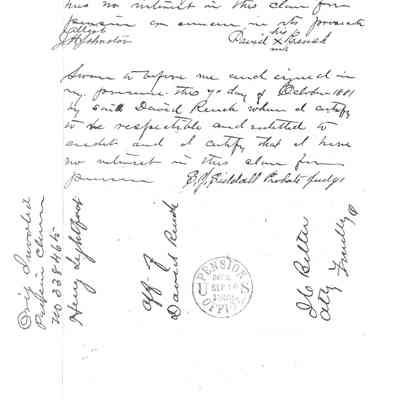 has no interest in this claim for
pension or concern in its prosecution
Attest
J H Johnston
his
David X Reush
mark
Sworn to before me and signed in
my presence this 7 day of October 1881
by said David Reush whom I certify
to be respectable and entitled to
credit and I certify that I have
no interest in this claim for
pension
Probate Judge
Orig Invalid
Pension Claim
No 338465
Henry Lightfoot
Aff of
David Reush
PENSION
SEP
OFFICE
Atty